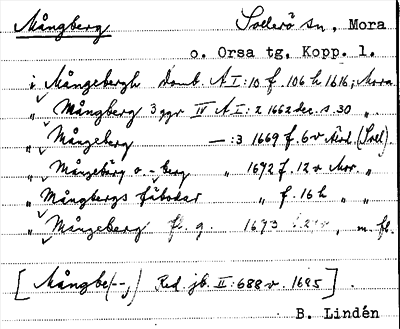 Mångberg Sollerö sn, Mora
o. Orsa tg, Kopp. l.
i Mångebergh domb. A I:10 f. 106 h 1616; Mora
" Mångberg 3 ggr IV A I:2 1662 s. 30 "
" Mångeberg —:3 1669 f. 6 v (Soll).
" Mångebärg o. -berg " 1672 f. 12 v Mor. "
" Mångbergs fäbodar " f. 16 h " "
" Mångeberg fl. g. 1673 , m. fl.
[Mångbe(--,) Red. jb. II:688 v. 1685].
B. Lindén